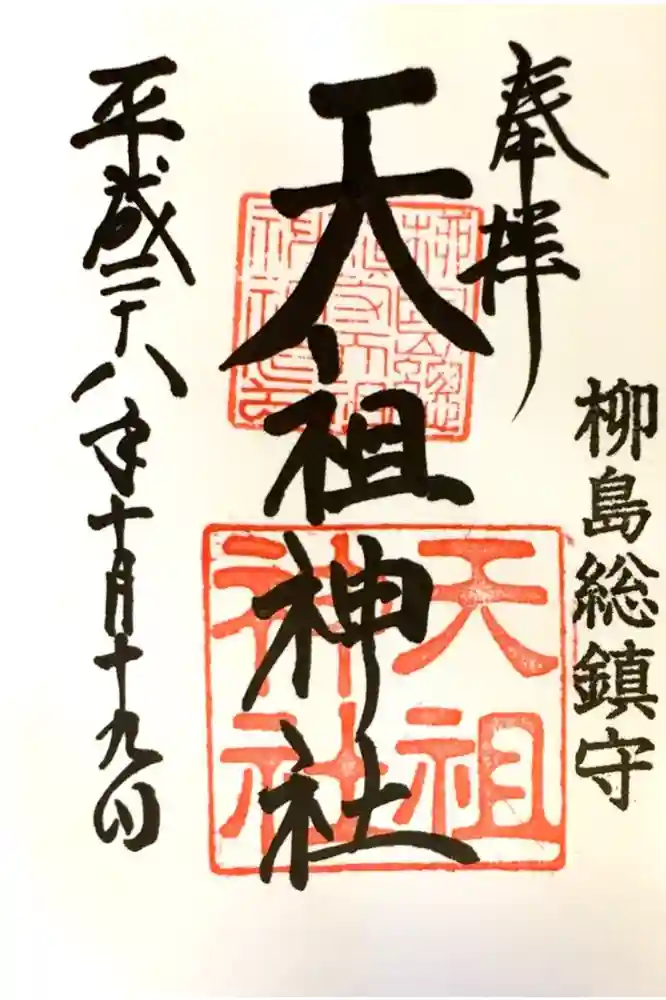 奉拝
柳島総鎮守
天祖神社
天祖
神社
平成二十八年十月十九日